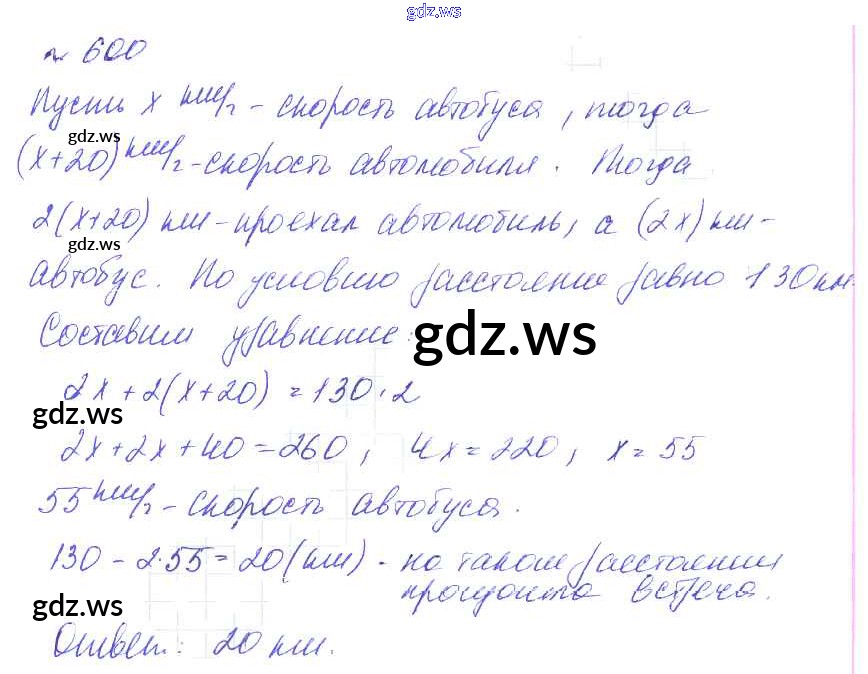 gdz.ws
№ 600
Пусть x км/ч - скорость автобуса, тогда
gdz.ws
(x+20) км/ч - скорость автомобиля. Тогда
2(x+20) км - проехал автомобиль, а (2x) км -
gdz.ws
автобус. По условию расстояние равно 130 км.
Составим уравнение:
gdz.ws
2x+2(x+20) = 130·2
gdz.ws
2x+2x+40=260, 4x=220, x=55
55 км/ч - скорость автобуса.
130 - 2·55 = 20 (км) - на таком расстоянии
произойдёт встреча.
gdz.ws
Ответ: 20 км.